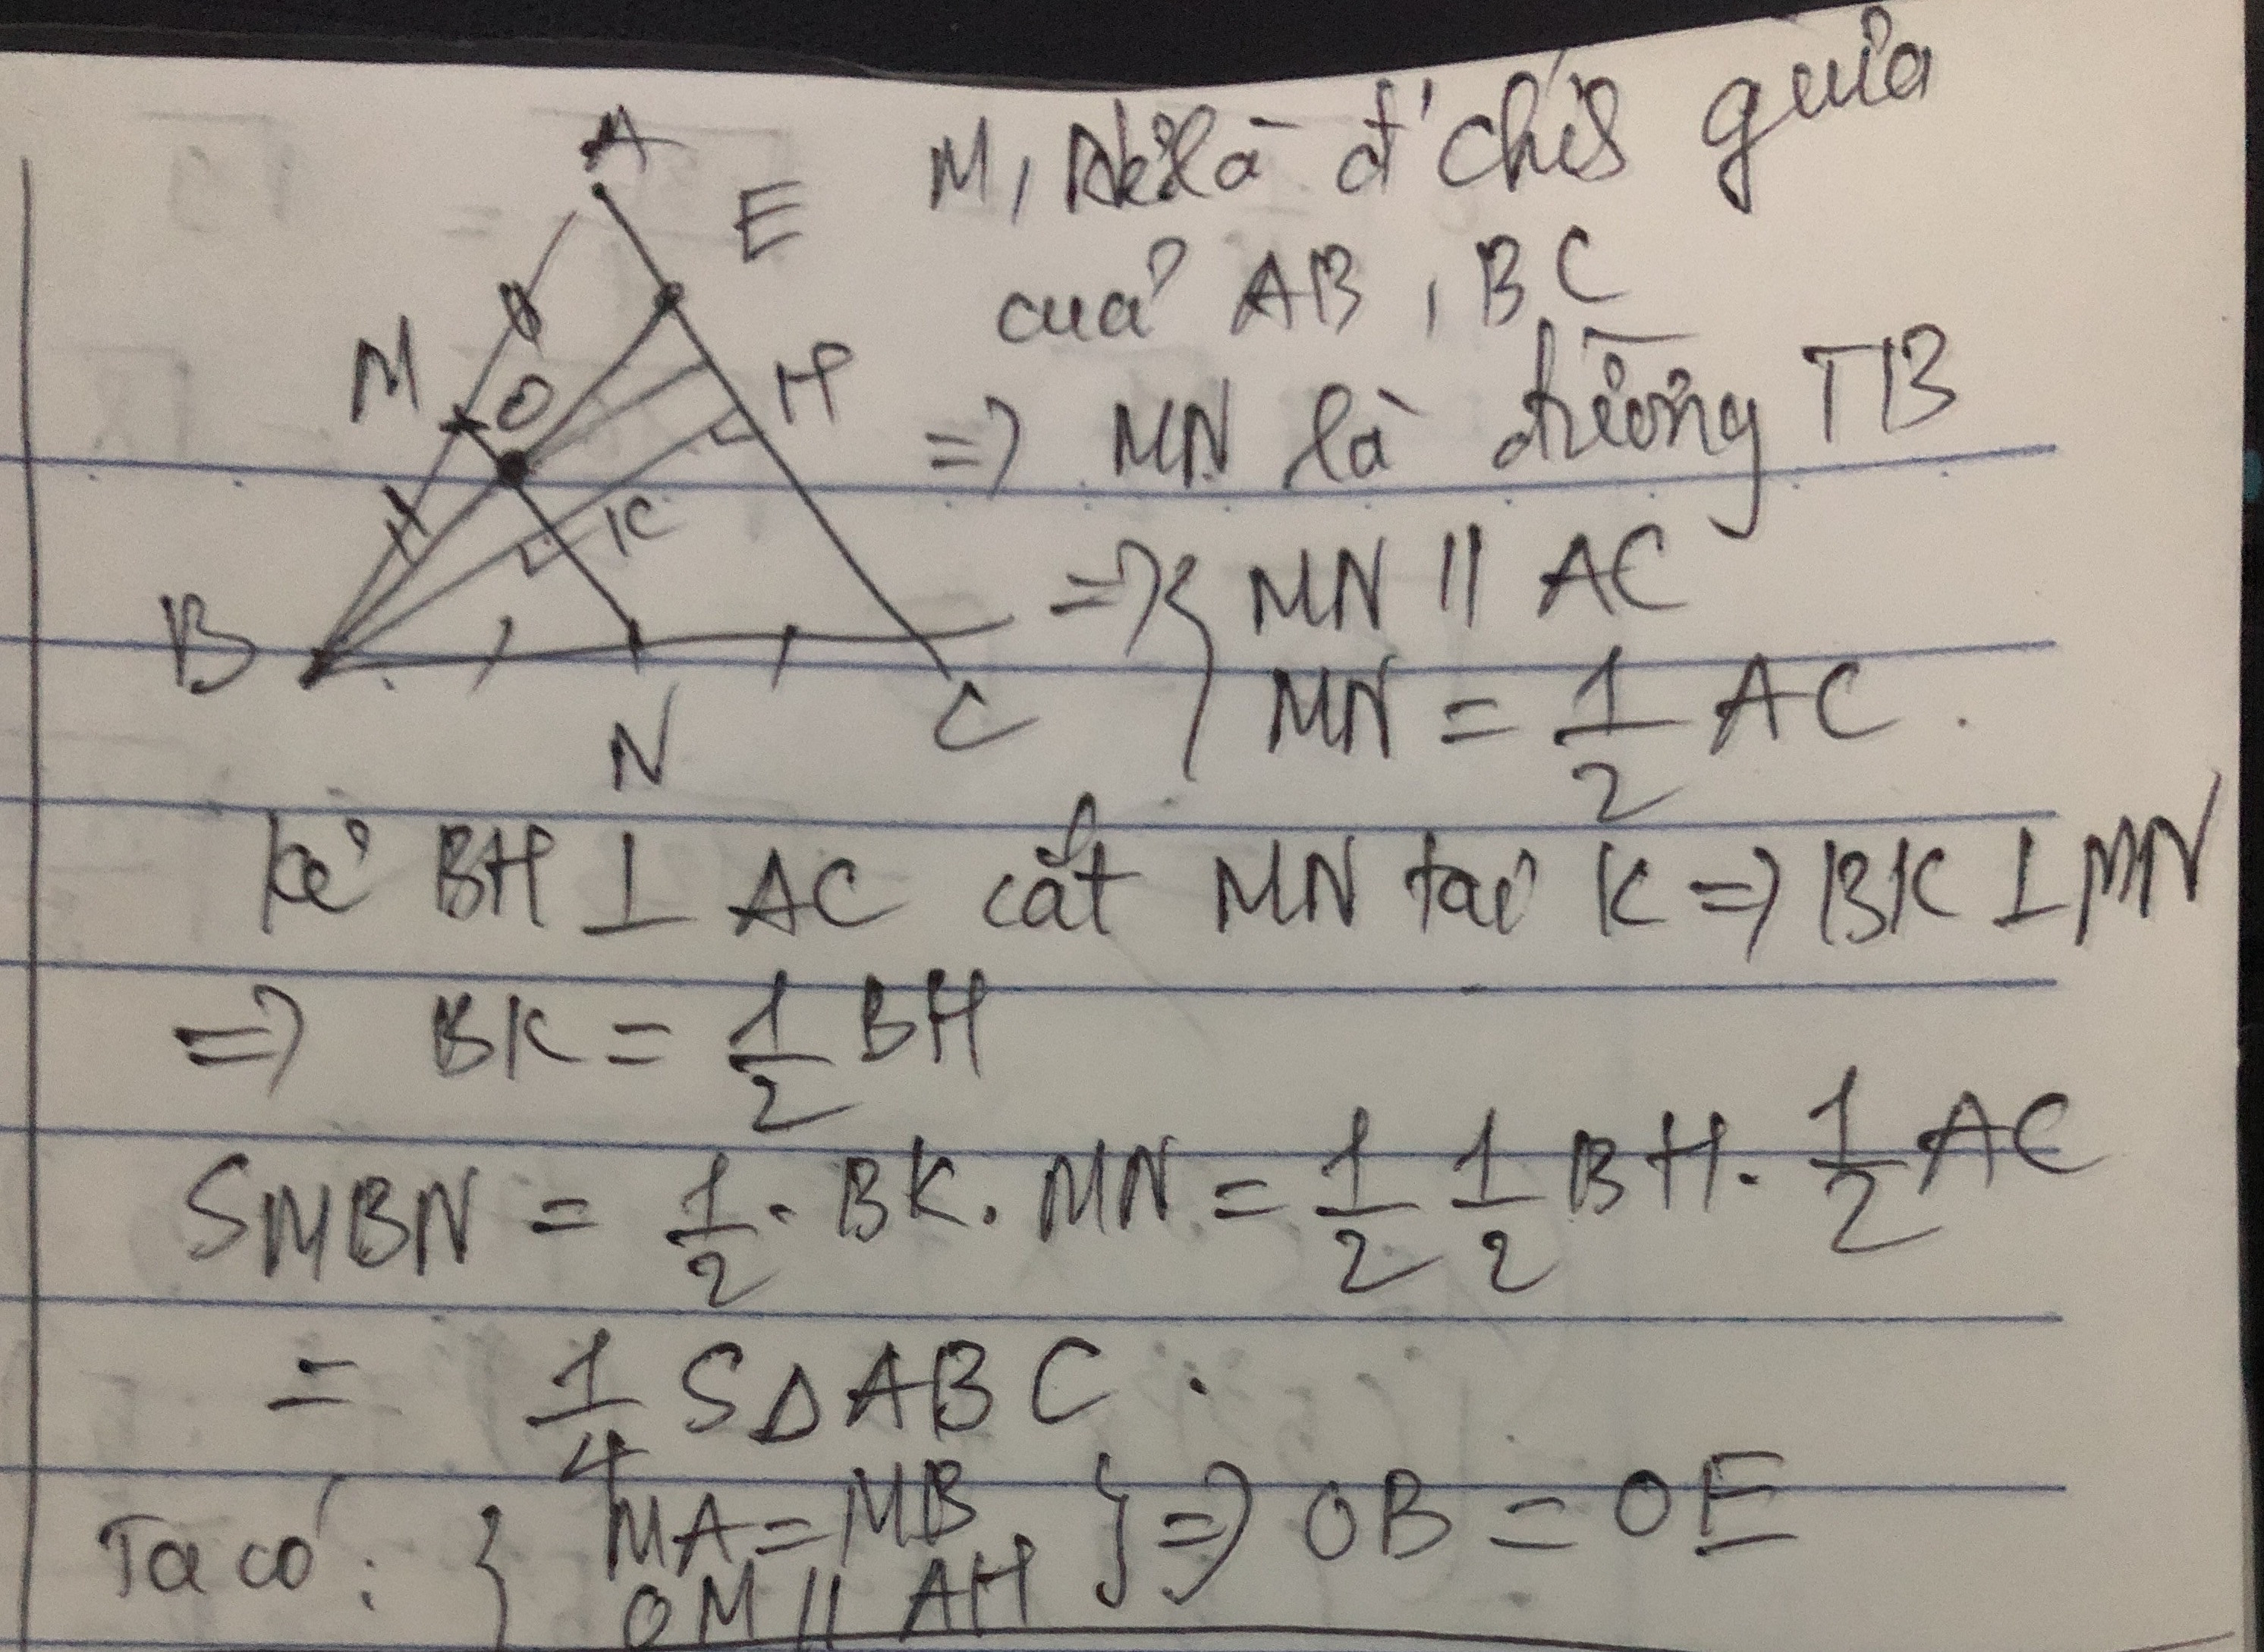 A
E
M, N là đ' chís giữa
của AB, BC
M
O
H
=> MN là đường TB
K
B
=> { MN // AC
MN = 1/2 AC.
N
C
kẻ BH ⊥ AC cắt MN tại K => BK ⊥ MN
=> BK = 1/2 BH
SMBN = 1/2 . BK. MN = 1/2 1/2 BH. 1/2 AC
= 1/4 SΔABC.
Ta có: { MA = MB
OM // AH } => OB = OE